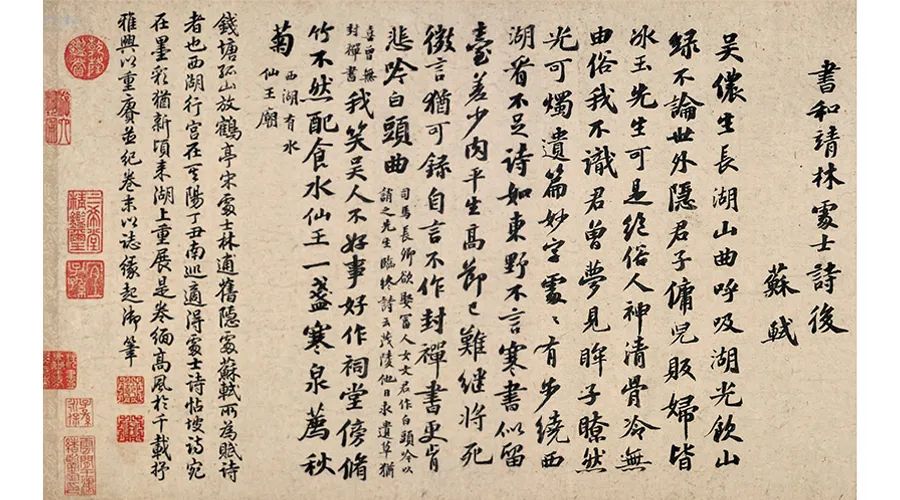 書和靖林處士詩後
蘇軾
吴儂生長湖山曲呼吸湖光飲山
緑不論世外隱君子傭兒販婦皆
冰玉先生可是絕俗人神清骨冷無
由俗我不識君曾夢見眸子瞭然
光可燭遺篇妙字處〻有步繞西
湖看不足詩如東野不言寒書似留
臺差少肉平生高節已難繼將死
微言猶可録自言不作封禪書更肯
悲吟白頭曲
司馬長卿欲娶富人女文君作白頭吟以
誚之先生臨終詩云茂陵他日求遺草猶
喜曾無
封禪書
我笑吴人不好事好作祠堂傍脩
竹不然配食水仙王一盞寒泉薦秋
菊
西湖有水
仙王廟
錢塘孤山放鶴亭宋處士林逋舊隱處蘇軾所為賦詩
者也西湖行宫在其陽丁丑南巡適得處士詩帖坡詩宛
在墨彩猶新頃来湖上重展是卷緬高風於千載抒
雅興以重賡並紀卷末以誌緣起御筆
乾隆鑑賞
三希堂精鑑璽
宜子孫